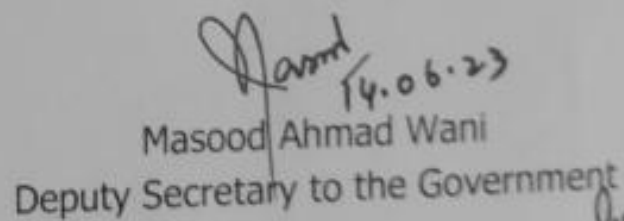 Masood
14.06.23
Masood Ahmad Wani
Deputy Secretary to the Government